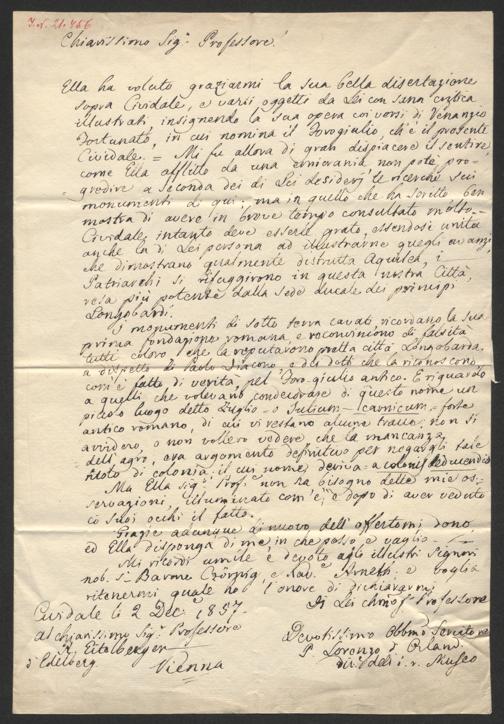 J. N. 21.466
Chiarissimo Sig.r Professore!
Ella ha voluto graziarmi la sua bella disertazione
sopra Cividale, e varj oggetti da Lei con sana critica
illustrati, insignendo la sua opera coi versi di Venanzio
Fortunato, in cui nomina il Forogiulio, ch'è il presente
Cividale. = Mi fu allora di gran dispiacere il sentire
come Ella afflitto da una emicrania non potè pro-
gredire a seconda dei di Lei desiderj le ricerche sui
monumenti di qui; ma in quello che ha scritto ben
mostra di avere in breve tempo consultato molto.
Cividale intanto deve esserle grato, essendosi unita
anche la di Lei persona ad illustrarne quegli avanzi,
che dimostrano qualmente distrutta Aquileja, i
Patriarchi si rifuggirono in questa nostra Città,
resa più potente dalla sede ducale dei principi
Longobardi.
I monumenti di sotto terra cavati ricordano la sua
prima fondazione romana, e riconvincono di falsità
tutti coloro, che la reputavano pretta città Longobarda,
a dispetto di Paolo Diacono, e dei dotti che la riconoscono,
com'è fatto di verità, pel Forogiulio antico. E riguardo
a quelli che volevano condecorare di questo nome un
piccolo luogo detto Zuglio o Julium-Carnicum, forte
antico romano, di cui vi restano alcune tracce, non si
avvidero, o non vollero vedere, che la mancanza
dell'agro, era argomento definitivo per negargli tale
titolo di colonia, il cui nome deriva a coloniis deducendis
Ma Ella Sig.r Prof.e non ha bisogno delle mie os-
servazioni, illuminato com'è, e dopo di aver veduto
co' suoi occhi il fatto.
Grazie adunque di nuovo dell'offertomi dono,
ed Ella disponga di me in che posso, e vaglio.
Mi ricordi umile e devoto agli illustri Signori
nob. S.r Barone Czörnig, e Cav. Arneth e voglia
ritenermi quale ho l'onore di dichiararmi
Di Lei chmo Sig.r Professore
Cividale li 2 Dec.e 1857.
Al chiarissimo Sig.r Professore
R. Eitelberger
d'Edelberg
Vienna
Devotissimo Obbmo Servitore
P. Lorenzo d'Orlandi
Dir. del i. r. Museo